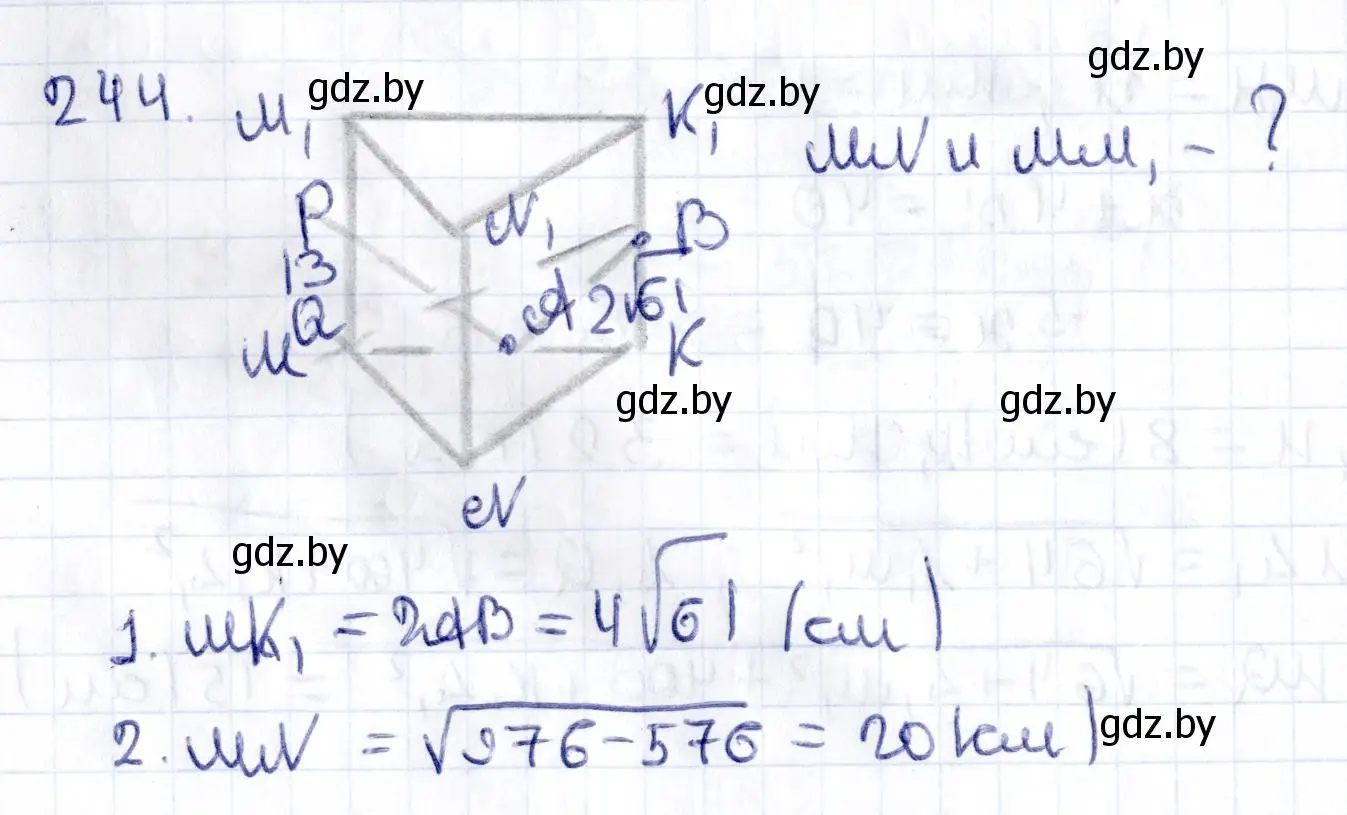 244.
gdz.by
gdz.by
gdz.by
M₁
K₁
MN и MM₁ - ?
P
N₁
B
13
A
2√61
Q
M
K
gdz.by
gdz.by
N
gdz.by
1. MK₁ = 2AB = 4√61 (см)
2. MN = √976-576 = 20 (см)
gdz.by